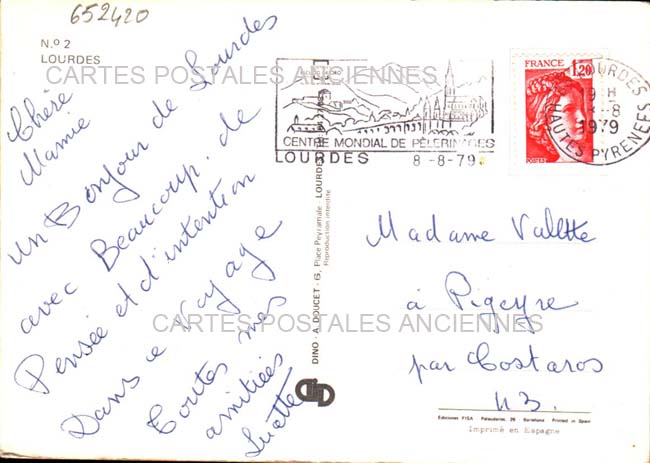 652420
N.º 2
LOURDES
CARTES POSTALES ANCIENNES
Chère
Mamie
un Bonjour de Lourdes
avec Beaucoup de
Pensée et d'intention
Dans ce voyage
Toutes mes
amitiées
CENTRE MONDIAL DE PÈLERINAGES
LOURDES 8-8-79
FRANCE
1,20
POSTES
LOURDES
8-8
1979
HAUTES PYRENEES
DINO - A. DOUCET - G, Place Peyramale LOURDES
Reproduction interdite
Madame Valette
à Pigeyre
par Costaros
43.
CARTES POSTALES ANCIENNES
Ediciones FISA Palaudarias, 26 Barcelona Printed in Spain
Imprimé en Espagne